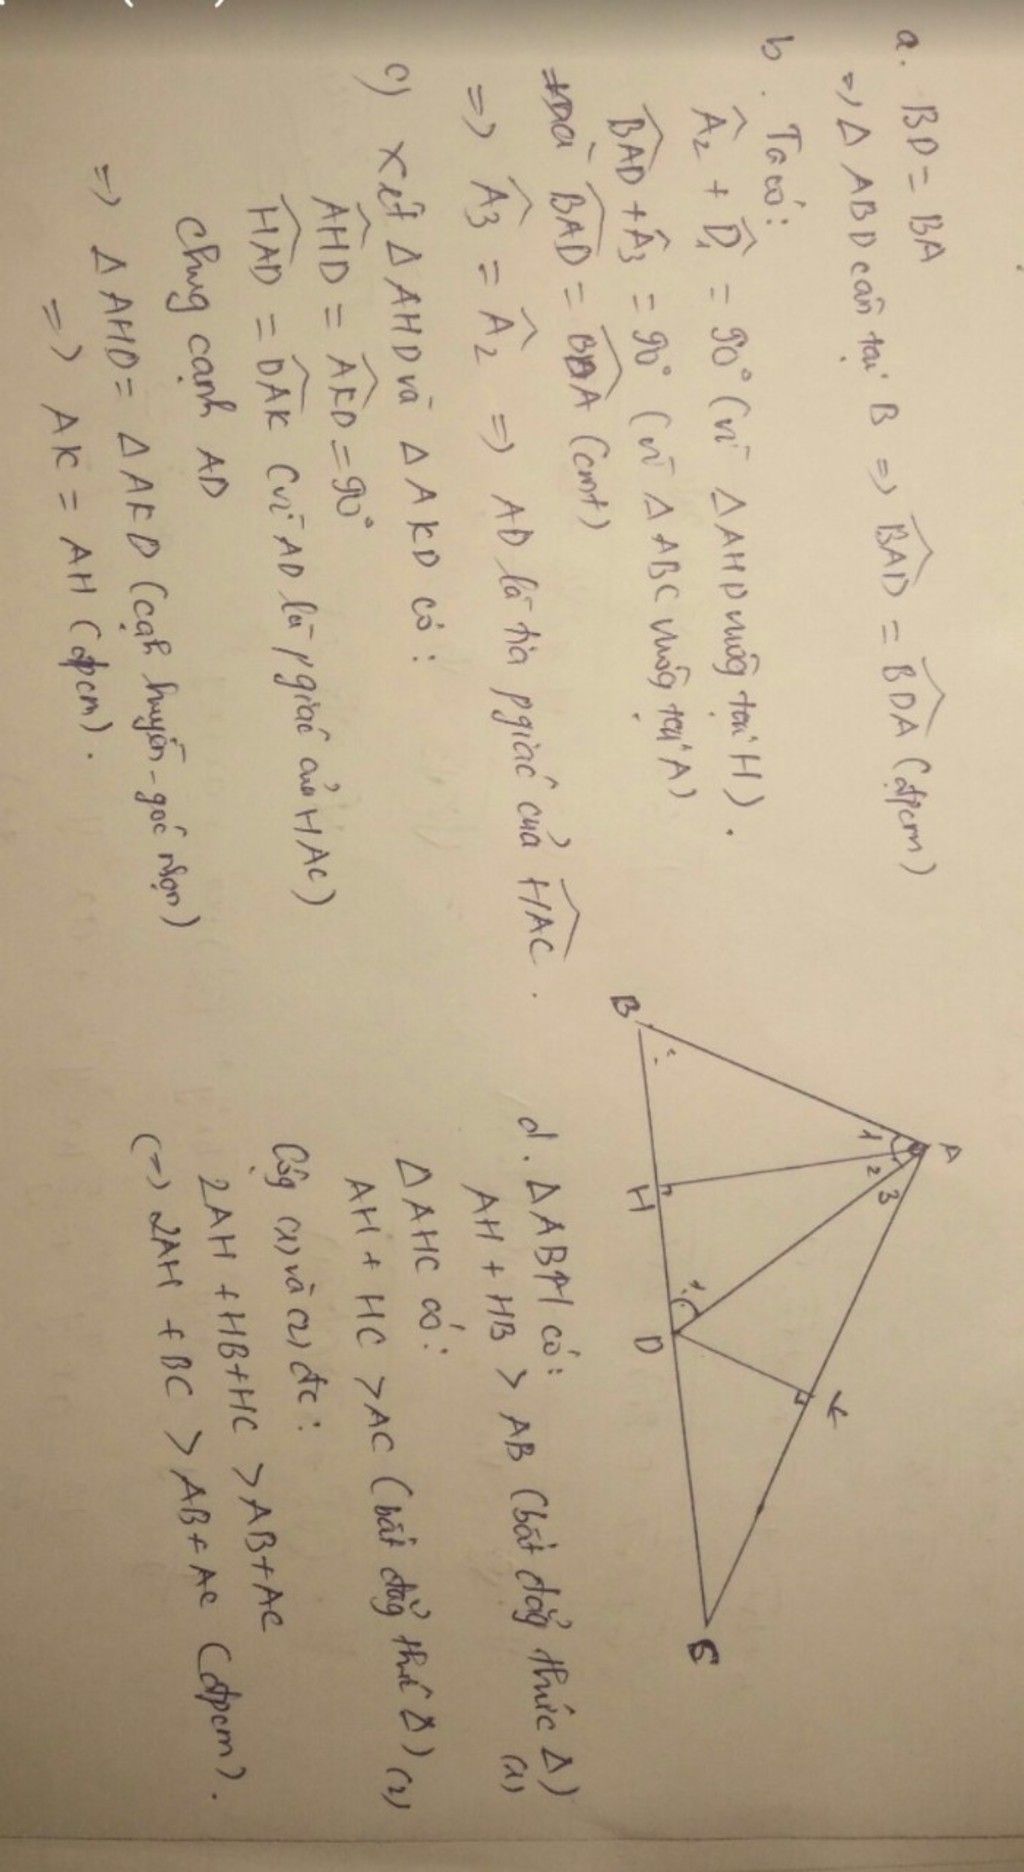 a. BD = BA
=> Δ ABD cân tại B => \widehat{BAD} = \widehat{BDA} (đpcm)
b. Ta có:
\widehat{A}₂ + \widehat{D}₁ = 90° (vì Δ AHD vuôg tại H).
\widehat{BAD} + \widehat{A}₃ = 90° (vì Δ ABC vuôg tại A)
Mà \widehat{BAD} = \widehat{BDA} (cmt)
=> \widehat{A}₃ = \widehat{A}₂ => AD là tia pgiác của \widehat{HAC}.
c) Xét Δ AHD và Δ AKD có:
\widehat{AHD} = \widehat{AKD} = 90°
\widehat{HAD} = \widehat{DAK} (vì AD là pgiác của HAC)
Chug cạnh AD
=> Δ AHD = Δ AKD (cạh huyền - góc nhọn)
=> AK = AH (đpcm).
A
1 2 3
B
H
1
D
K
C
d. Δ ABH có:
AH + HB > AB (bất đẳg thức Δ) (1)
Δ AHC có:
AH + HC > AC (bất đẳg thức Δ) (2)
Cộg (1) và (2) đc:
2AH + HB + HC > AB + AC
(=) 2AH + BC > AB + AC (đpcm).